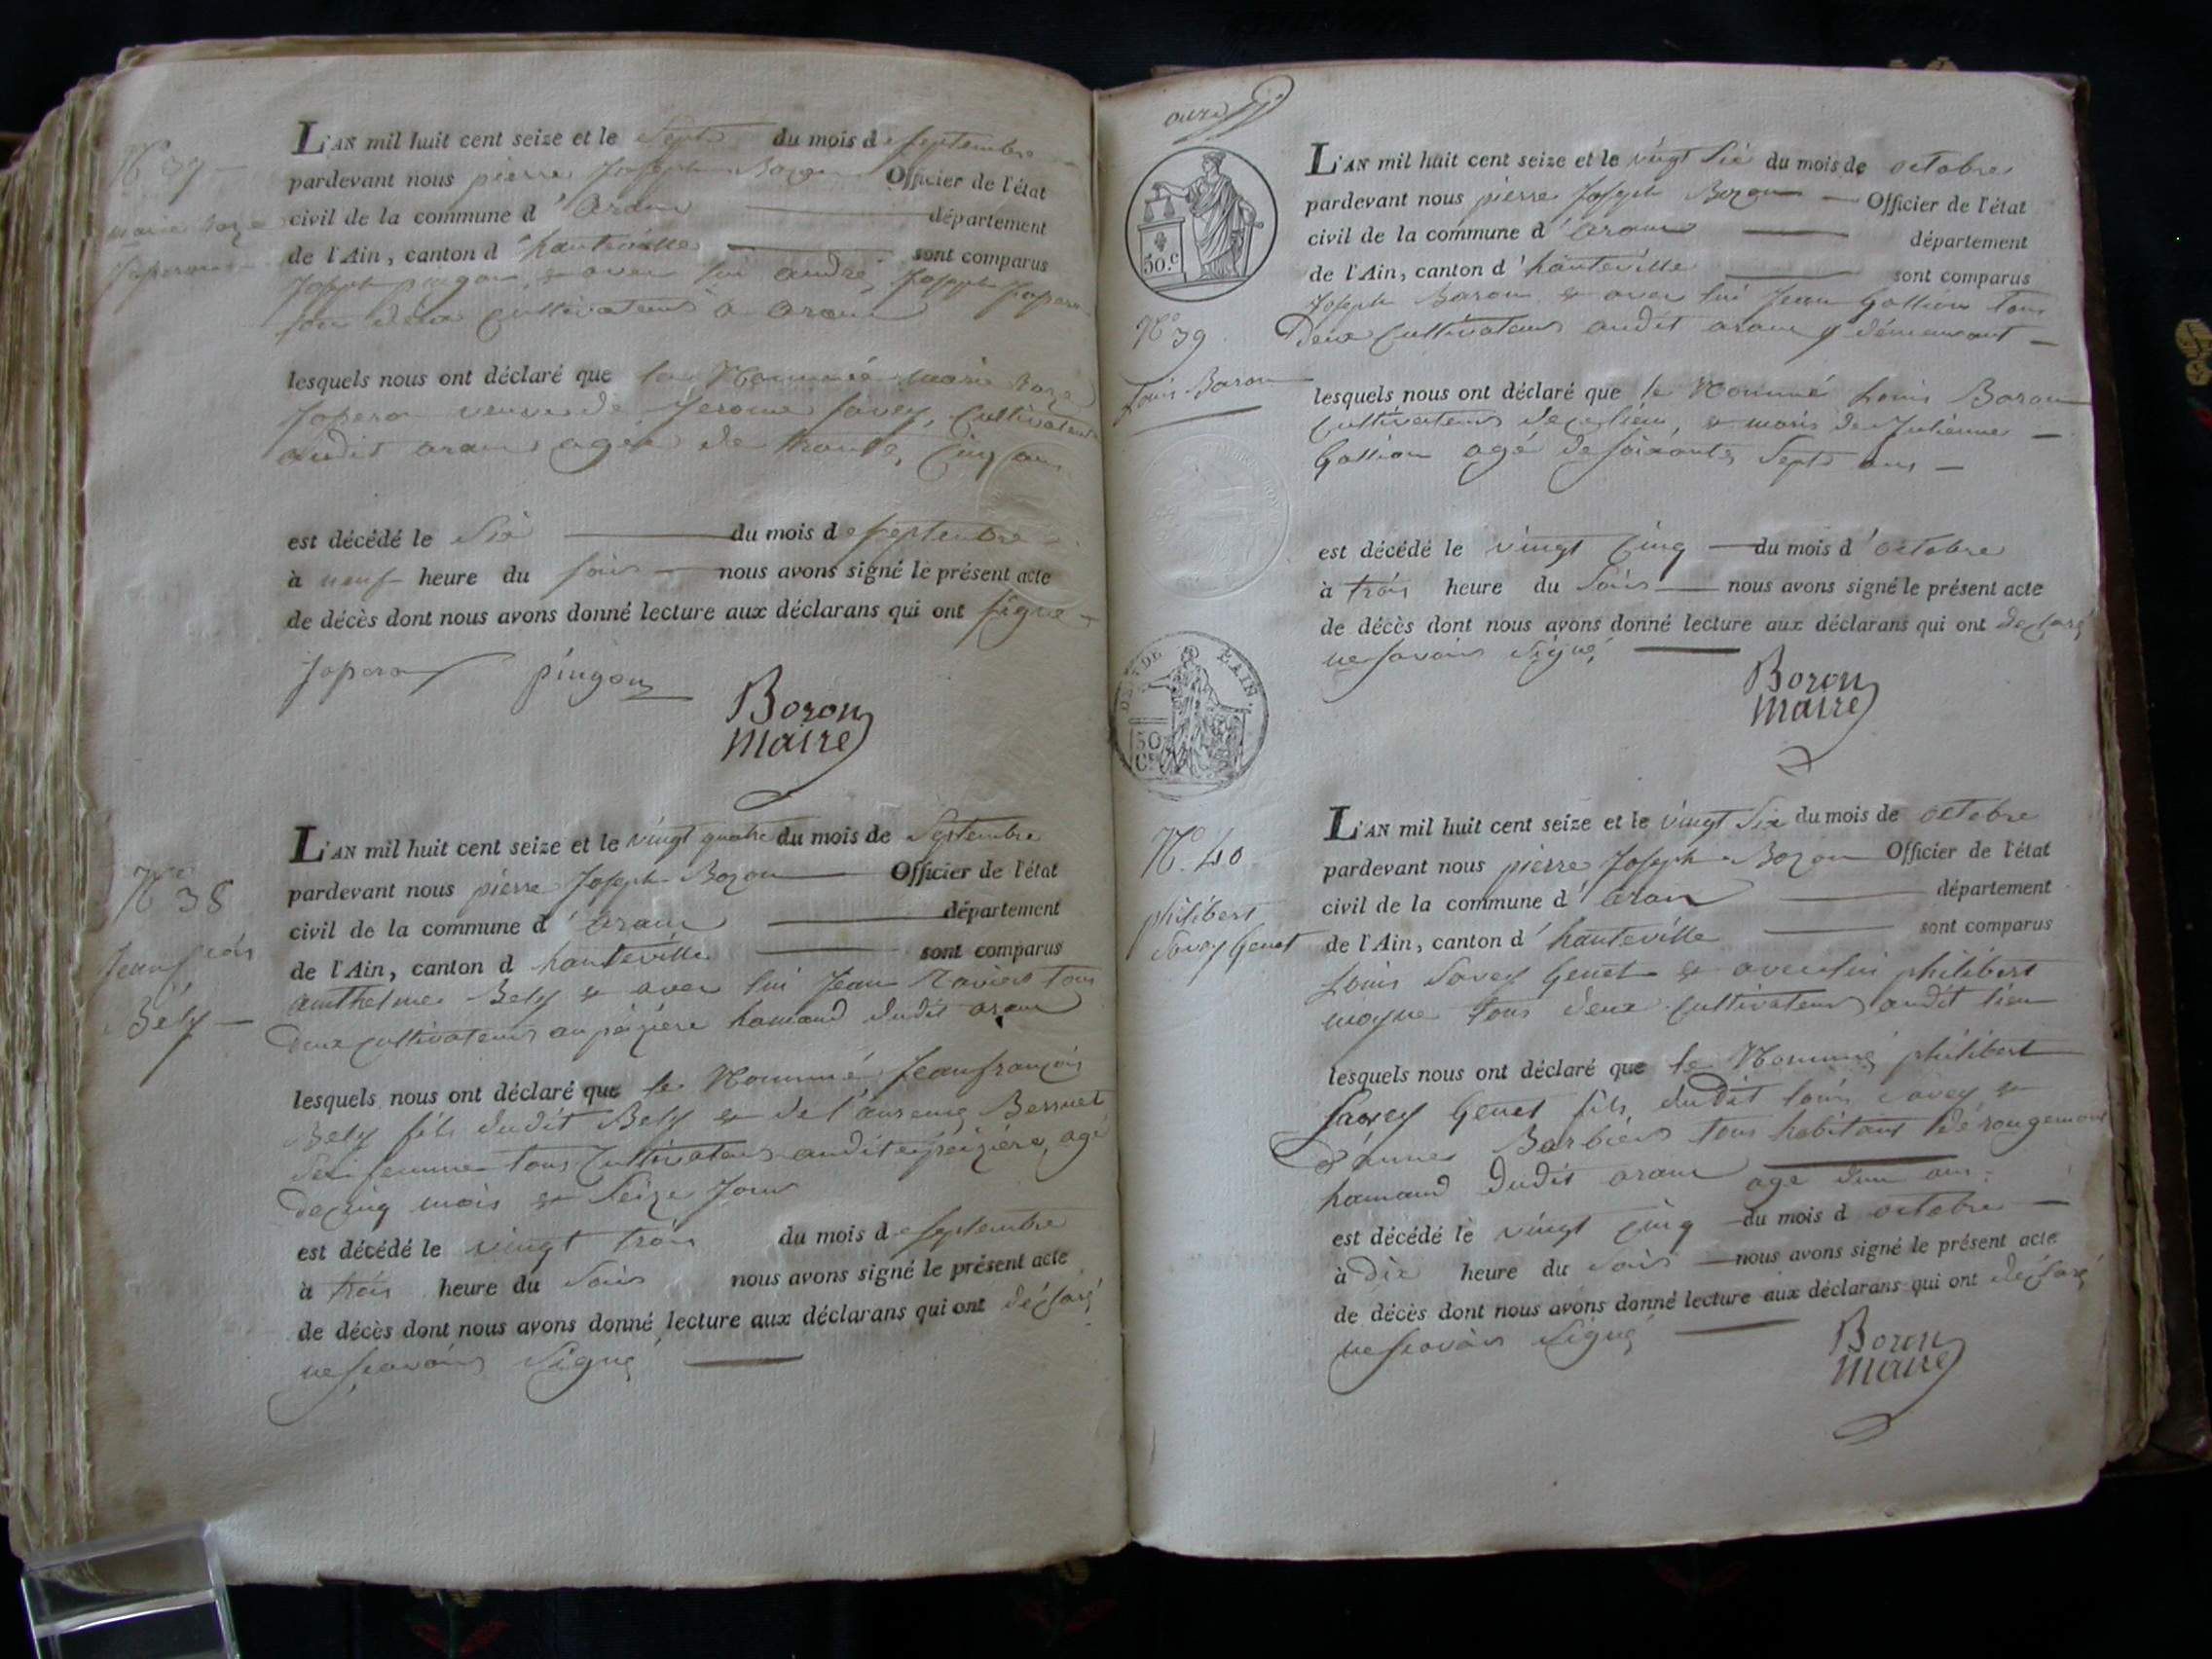 N.º 39
marie Roze
Joperon
L'AN mil huit cent seize et le Sept du mois de Septembre
pardevant nous pierre Joseph Bozon Officier de l'état
civil de la commune d'aranc département
de l'Ain, canton d'hauteville sont comparus
Joseph pingon & avec lui andré Joseph Joperon
tous deux Cultivateurs à aranc
lesquels nous ont déclaré que la Nommée marie Roze
Joperon veuve de Jerome Savey, Cultivateur
audit aranc agée de trente Cinq ans
est décédé le Six du mois de Septembre
à neuf heure du soir nous avons signé le présent acte
de décès dont nous avons donné lecture aux déclarans qui ont signé
Joperon pingon
Bozon
maire
N.º 38
Jeanfrançois
Bely
L'AN mil huit cent seize et le vingt quatre du mois de Septembre
pardevant nous pierre Joseph Bozon Officier de l'état
civil de la commune d'aranc département
de l'Ain, canton d hauteville sont comparus
anthelme Bely & avec lui Jean Ravier tous
deux cultivateurs hamaud dudit aranc
lesquels nous ont déclaré que le Nommé Jeanfrançois
Bely fils dudit Bely & de Bessuet
sa femme tous Cultivateurs agé
de cinq mois & Seize Jours
est décédé le vingt trois du mois de Septembre
à trois heure du Soir nous avons signé le présent acte
de décès dont nous avons donné lecture aux déclarans qui ont déclaré
ne scavoir Signé
50.c
N.º 39
Louis Baron
L'AN mil huit cent seize et le vingt Six du mois de octobre
pardevant nous pierre Joseph Bozon Officier de l'état
civil de la commune d'aranc département
de l'Ain, canton d'hauteville sont comparus
Joseph Baron & avec lui Jean Gallion tous
Deux Cultivateurs audit aranc y démeurant
lesquels nous ont déclaré que le Nommé Louis Baron
Cultivateur de ce lieu, & maris de Julienne
Gallion agé de soixante Sept ans
est décédé le vingt Cinq du mois d'octobre
à trois heure du Soir nous avons signé le présent acte
de décès dont nous avons donné lecture aux déclarans qui ont declaré
ne savoir Signé
Bozon
maire
DE L'AIN
50
C.
N.º 40
philibert
Savey Genet
L'AN mil huit cent seize et le vingt Six du mois de octobre
pardevant nous pierre Joseph Bozon Officier de l'état
civil de la commune d'aranc département
de l'Ain, canton d'hauteville sont comparus
Louis Savey Genet & avec lui philibert
moyne tous deux Cultivateurs audit lieu
lesquels nous ont déclaré que le Nommé philibert
Savey Genet fils dudit louis savey &
d'anne Barbier tous habitant de rougemont
hamaud dudit aranc agé d'un an
est décédé le vingt cinq du mois d octobre
à dix heure du soir nous avons signé le présent acte
de décès dont nous avons donné lecture aux déclarans qui ont déclaré
ne scavoir Signé
Bozon
maire